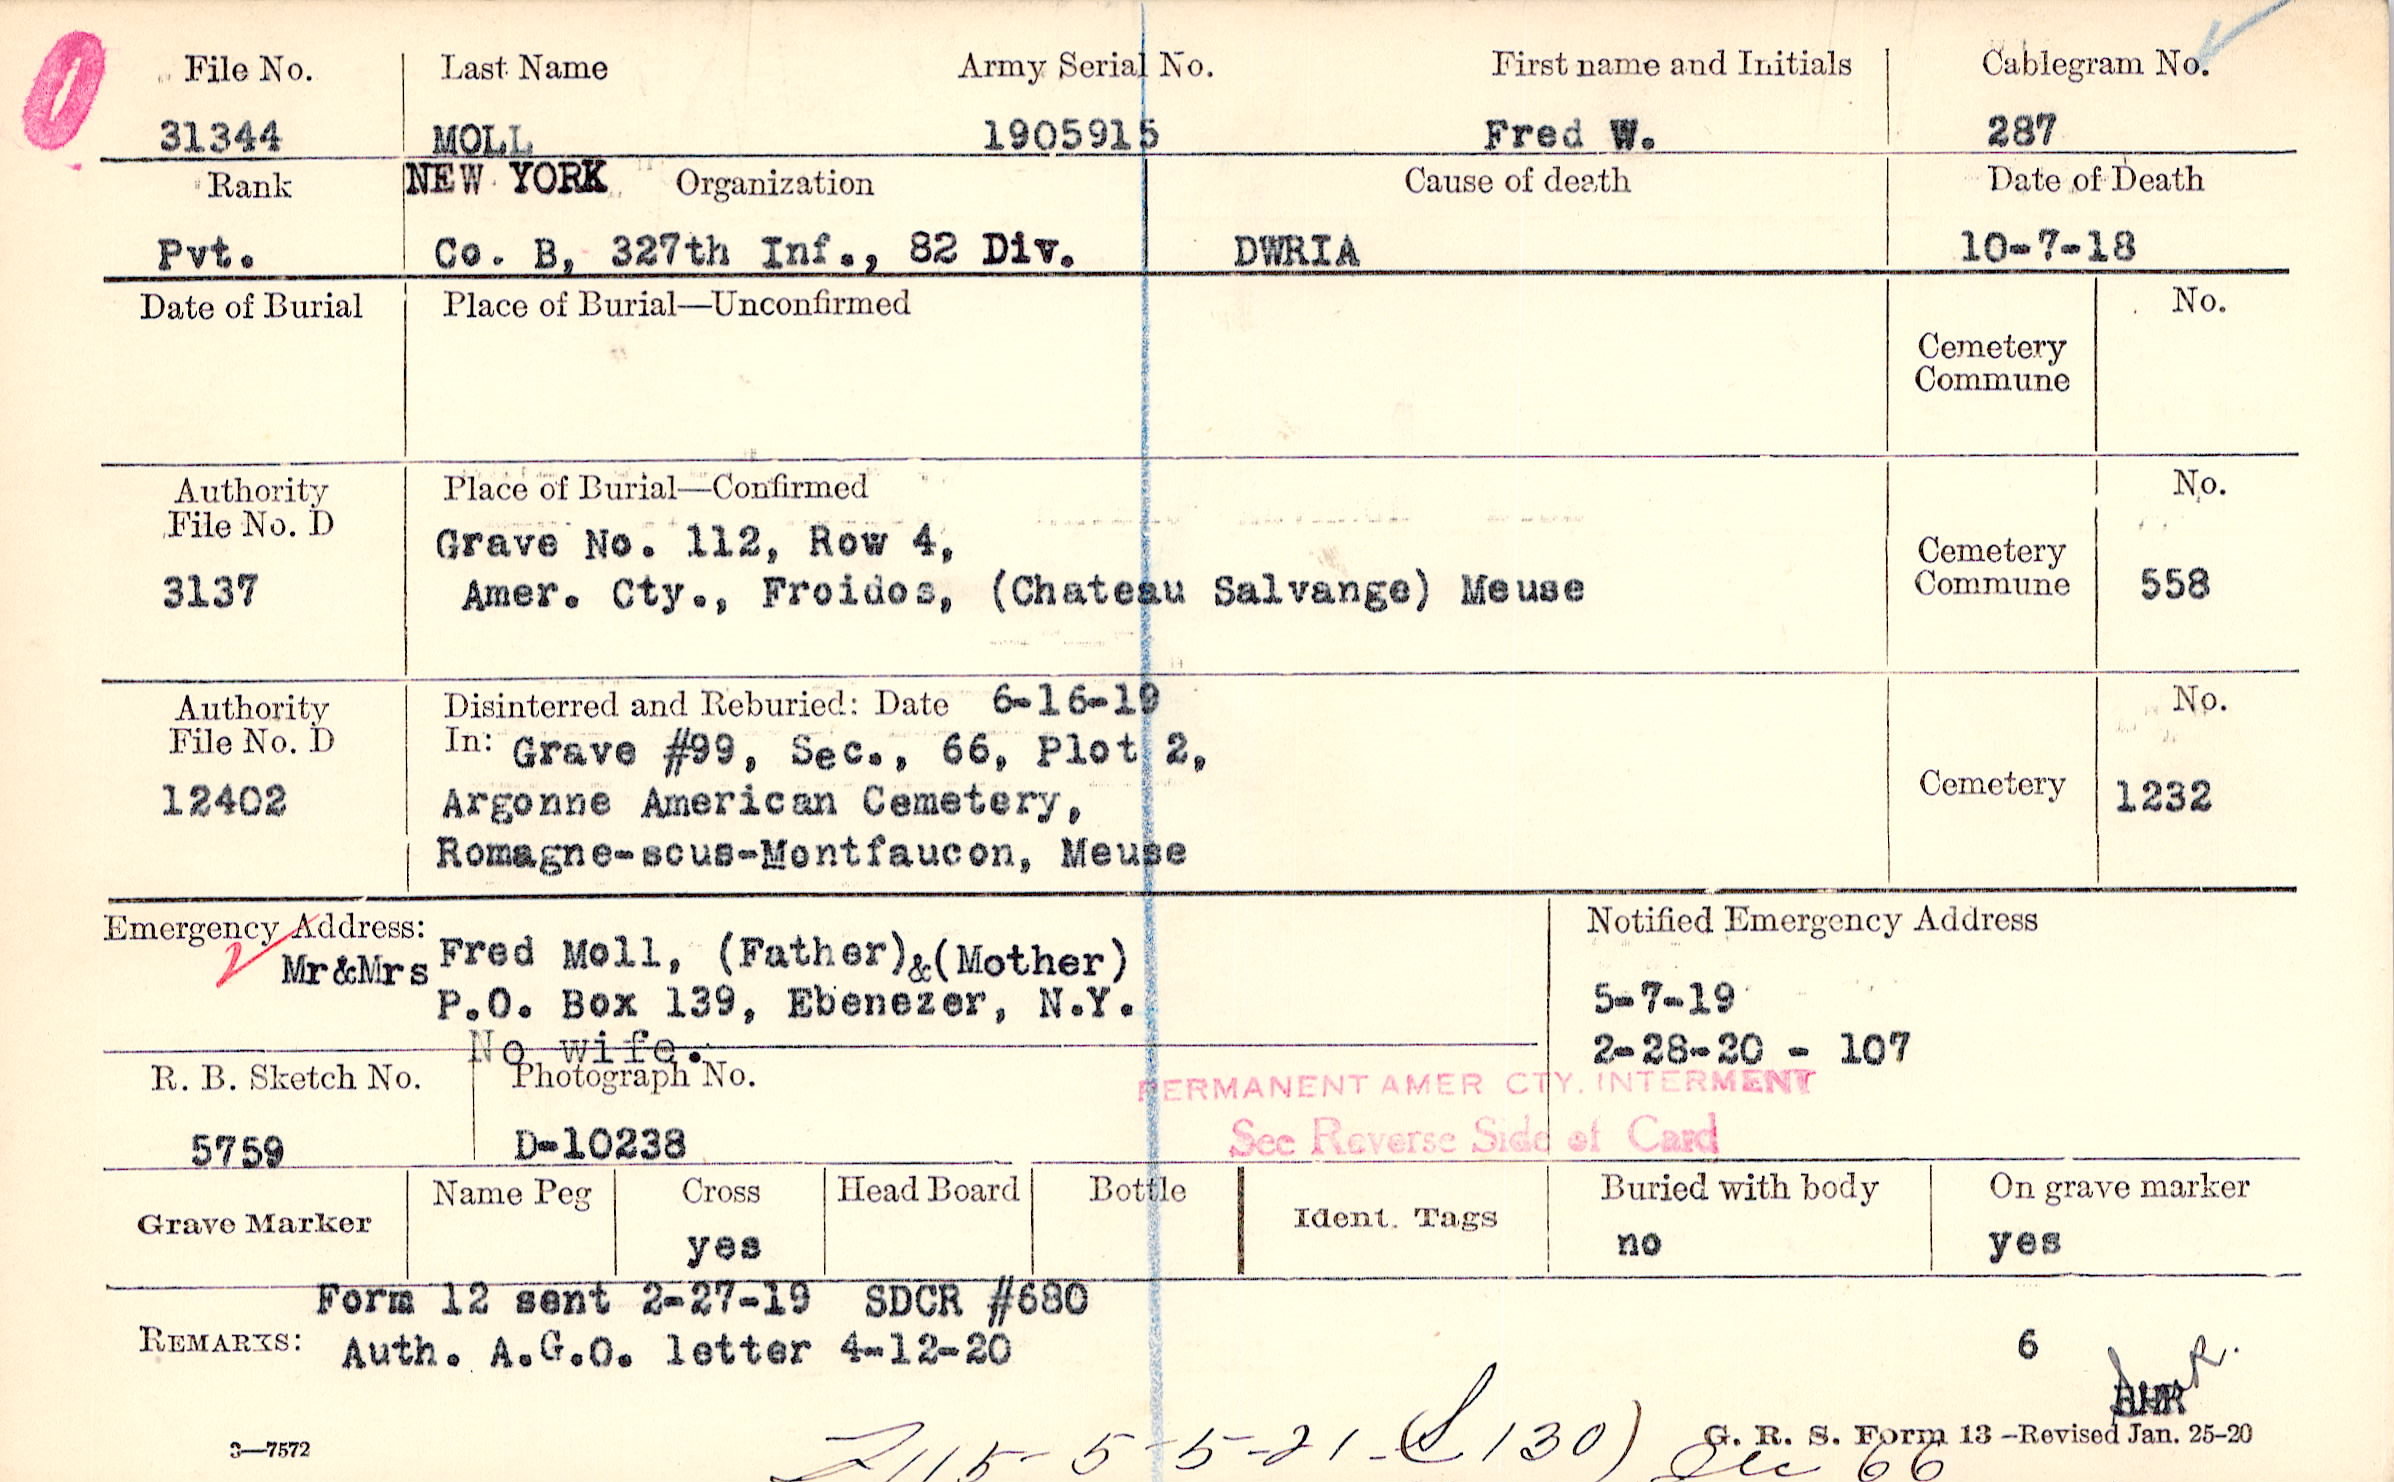 File No. Last Name Army Serial No. First name and Initials Cablegram No.
31344 MOLL 1905915 Fred W. 287
Rank NEW YORK Organization Cause of death Date of Death
Pvt. Co. B, 327th Inf., 82 Div. DWRIA 10-7-18
Date of Burial Place of Burial—Unconfirmed No.
Cemetery
Commune
Authority Place of Burial—Confirmed No.
File No. D
Grave No. 112, Row 4,
Cemetery
3137 Amer. Cty., Froidos, (Chateau Salvange) Meuse Commune 558
Authority Disinterred and Reburied: Date 6-16-19 No.
File No. D In: Grave #99, Sec., 66, Plot 2,
12402 Argonne American Cemetery, Cemetery 1232
Romagne-sous-Montfaucon, Meuse
Emergency Address: Notified Emergency Address
Mr&Mrs Fred Moll, (Father)&(Mother)
P.O. Box 139, Ebenezer, N.Y. 5-7-19
No wife. 2-28-20 - 107
R. B. Sketch No. Photograph No. PERMANENT AMER CTY. INTERMENT
5759 D-10238 See Reverse Side of Card
Name Peg Cross Head Board Bottle Buried with body On grave marker
Grave Marker Ident. Tags
yes no yes
Form 12 sent 2-27-19 SDCR #680
REMARKS: Auth. A.G.O. letter 4-12-20 6
5-5-21 130) Sec 66
3—7572 G. R. S. Form 13—Revised Jan. 25-20